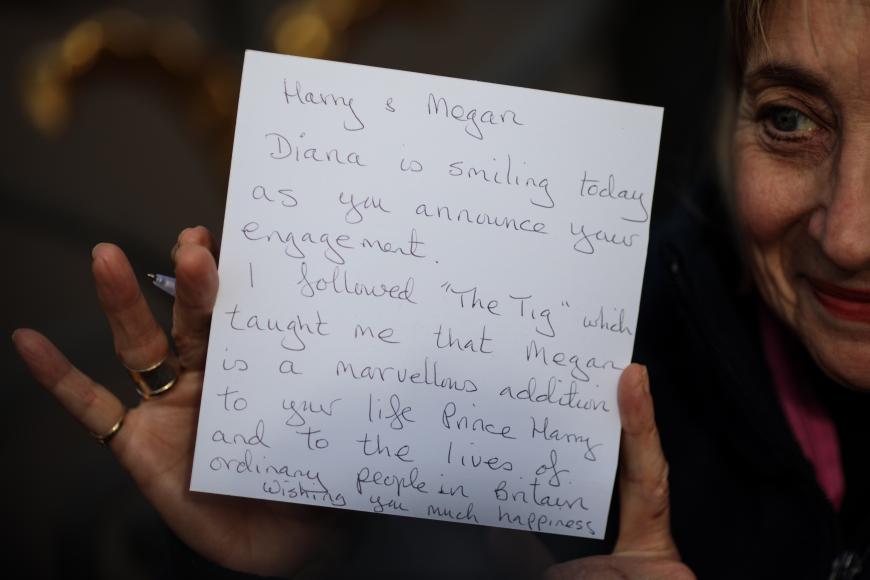 Harry & Megan
Diana is smiling today
as you announce your
engagement.
I followed "The Tig" which
taught me that Megan
is a marvellous addition
to your life Prince Harry
and to the lives of
ordinary people in Britain
Wishing you much happiness